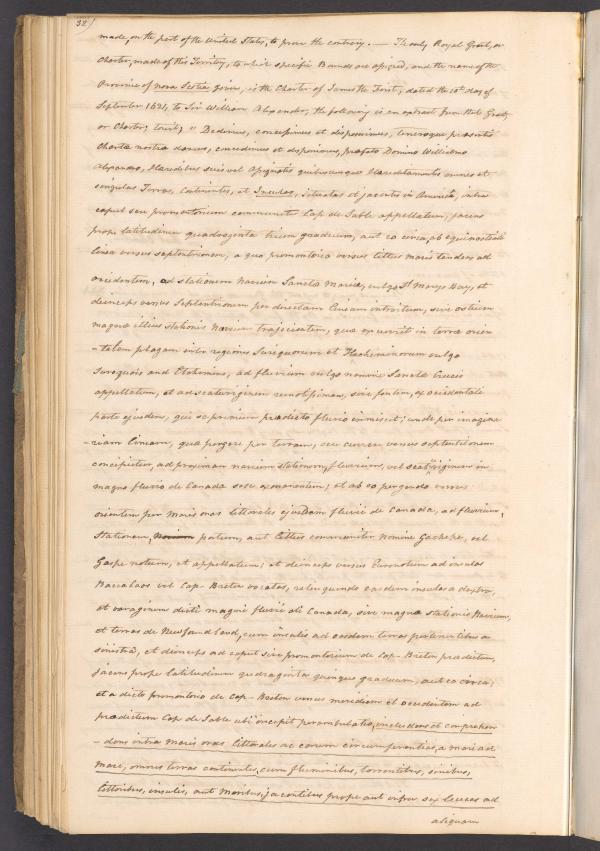 32
made, on the part of the United States, to prove the contrary. — The only Royal Grant, or
Charter, made of this Territory, to which specific Bounds are affixed, and the name of the
Province of nova Scotia given, is the Charter of James the First, dated the 10th day of
September 1621, to Sir William Alexander, the following is an extract from that Grant
or Charter, to wit; " Dedimus, concessimus et disposuimus, tenoreque præsentis
Chartæ nostræ damus, concedimus et disponimus, præfato Domino Willielmo
Alexandro, Hæredibus suis vel Assignatis quibuscunque Hæreditariis omnes et
singulas Terras, Continentes, et Insulas, situatas et jacentes in America, intra
caput seu promontorium communiter Cap de Sable appellatum, jacens
prope latitudinem quadraginta trium graduum, aut eo circa, ab equinoctiali
linea versus septentrionem, a quo promontorio versus littus maris tendens ad
occidentem, ad stationem navium Sanctæ Mariæ, vulgo St Marys Bay, et
deinceps versus Septentrionem per directam lineam introitum, sive ostium
magnæ illius stationis navium trajicientem, quæ excurrit in terræ orien
-talem plagam inter regiones Suriquorum et Etecheminorum vulgo
Suriquois and Etchemines, ad fluvium vulgo nomine Sanctæ Crucis
appellatum, et ad scaturiginem remotissimam, sive fontem, ex occidentali
parte ejusdem, qui se primum prædicto fluvio immiscet; unde per imagina
-riam lineam, quæ pergere per terram, seu currere versus septentrionem
concipietur, ad proximam navium stationem, fluvium, vel scaturiginem in
magno fluvio de Canada sese exonerantem; et ab eo pergendo versus
orientem per Maris oras littorales ejusdem fluvii de Canada, ad fluvium,
stationem, portum, aut littus communiter nomine Gachepe, vel
Gaspe notum, et appellatum; et deinceps versus Euronotum ad insulas
Baccalaos vel Cap-Breton vocatas, relinquendo easdem insulas a dextra,
et voraginem dicti magni fluvii de Canada, sive magnæ stationis Navium,
et terras de Newfoundland, cum insulis ad easdem terras pertinentibus a
sinistra, et deinceps ad caput sive promontorium de Cap-Breton prædictum,
jacens prope latitudinem quadraginta quinque graduum, aut eo circa;
et a dicto promontorio de Cap-Breton versus meridiem et occidentem ad
prædictum Cap de Sable ubi incepit perambulatio, includens et comprehen
-dens intra Maris oras littorales ac earum circumferentias, a mari ad
mare, omnes terras continentes, cum fluminibus, torrentibus, sinibus,
littoribus, insulis, aut Maribus, jacentibus prope aut infra sex leucas ad
aliquam